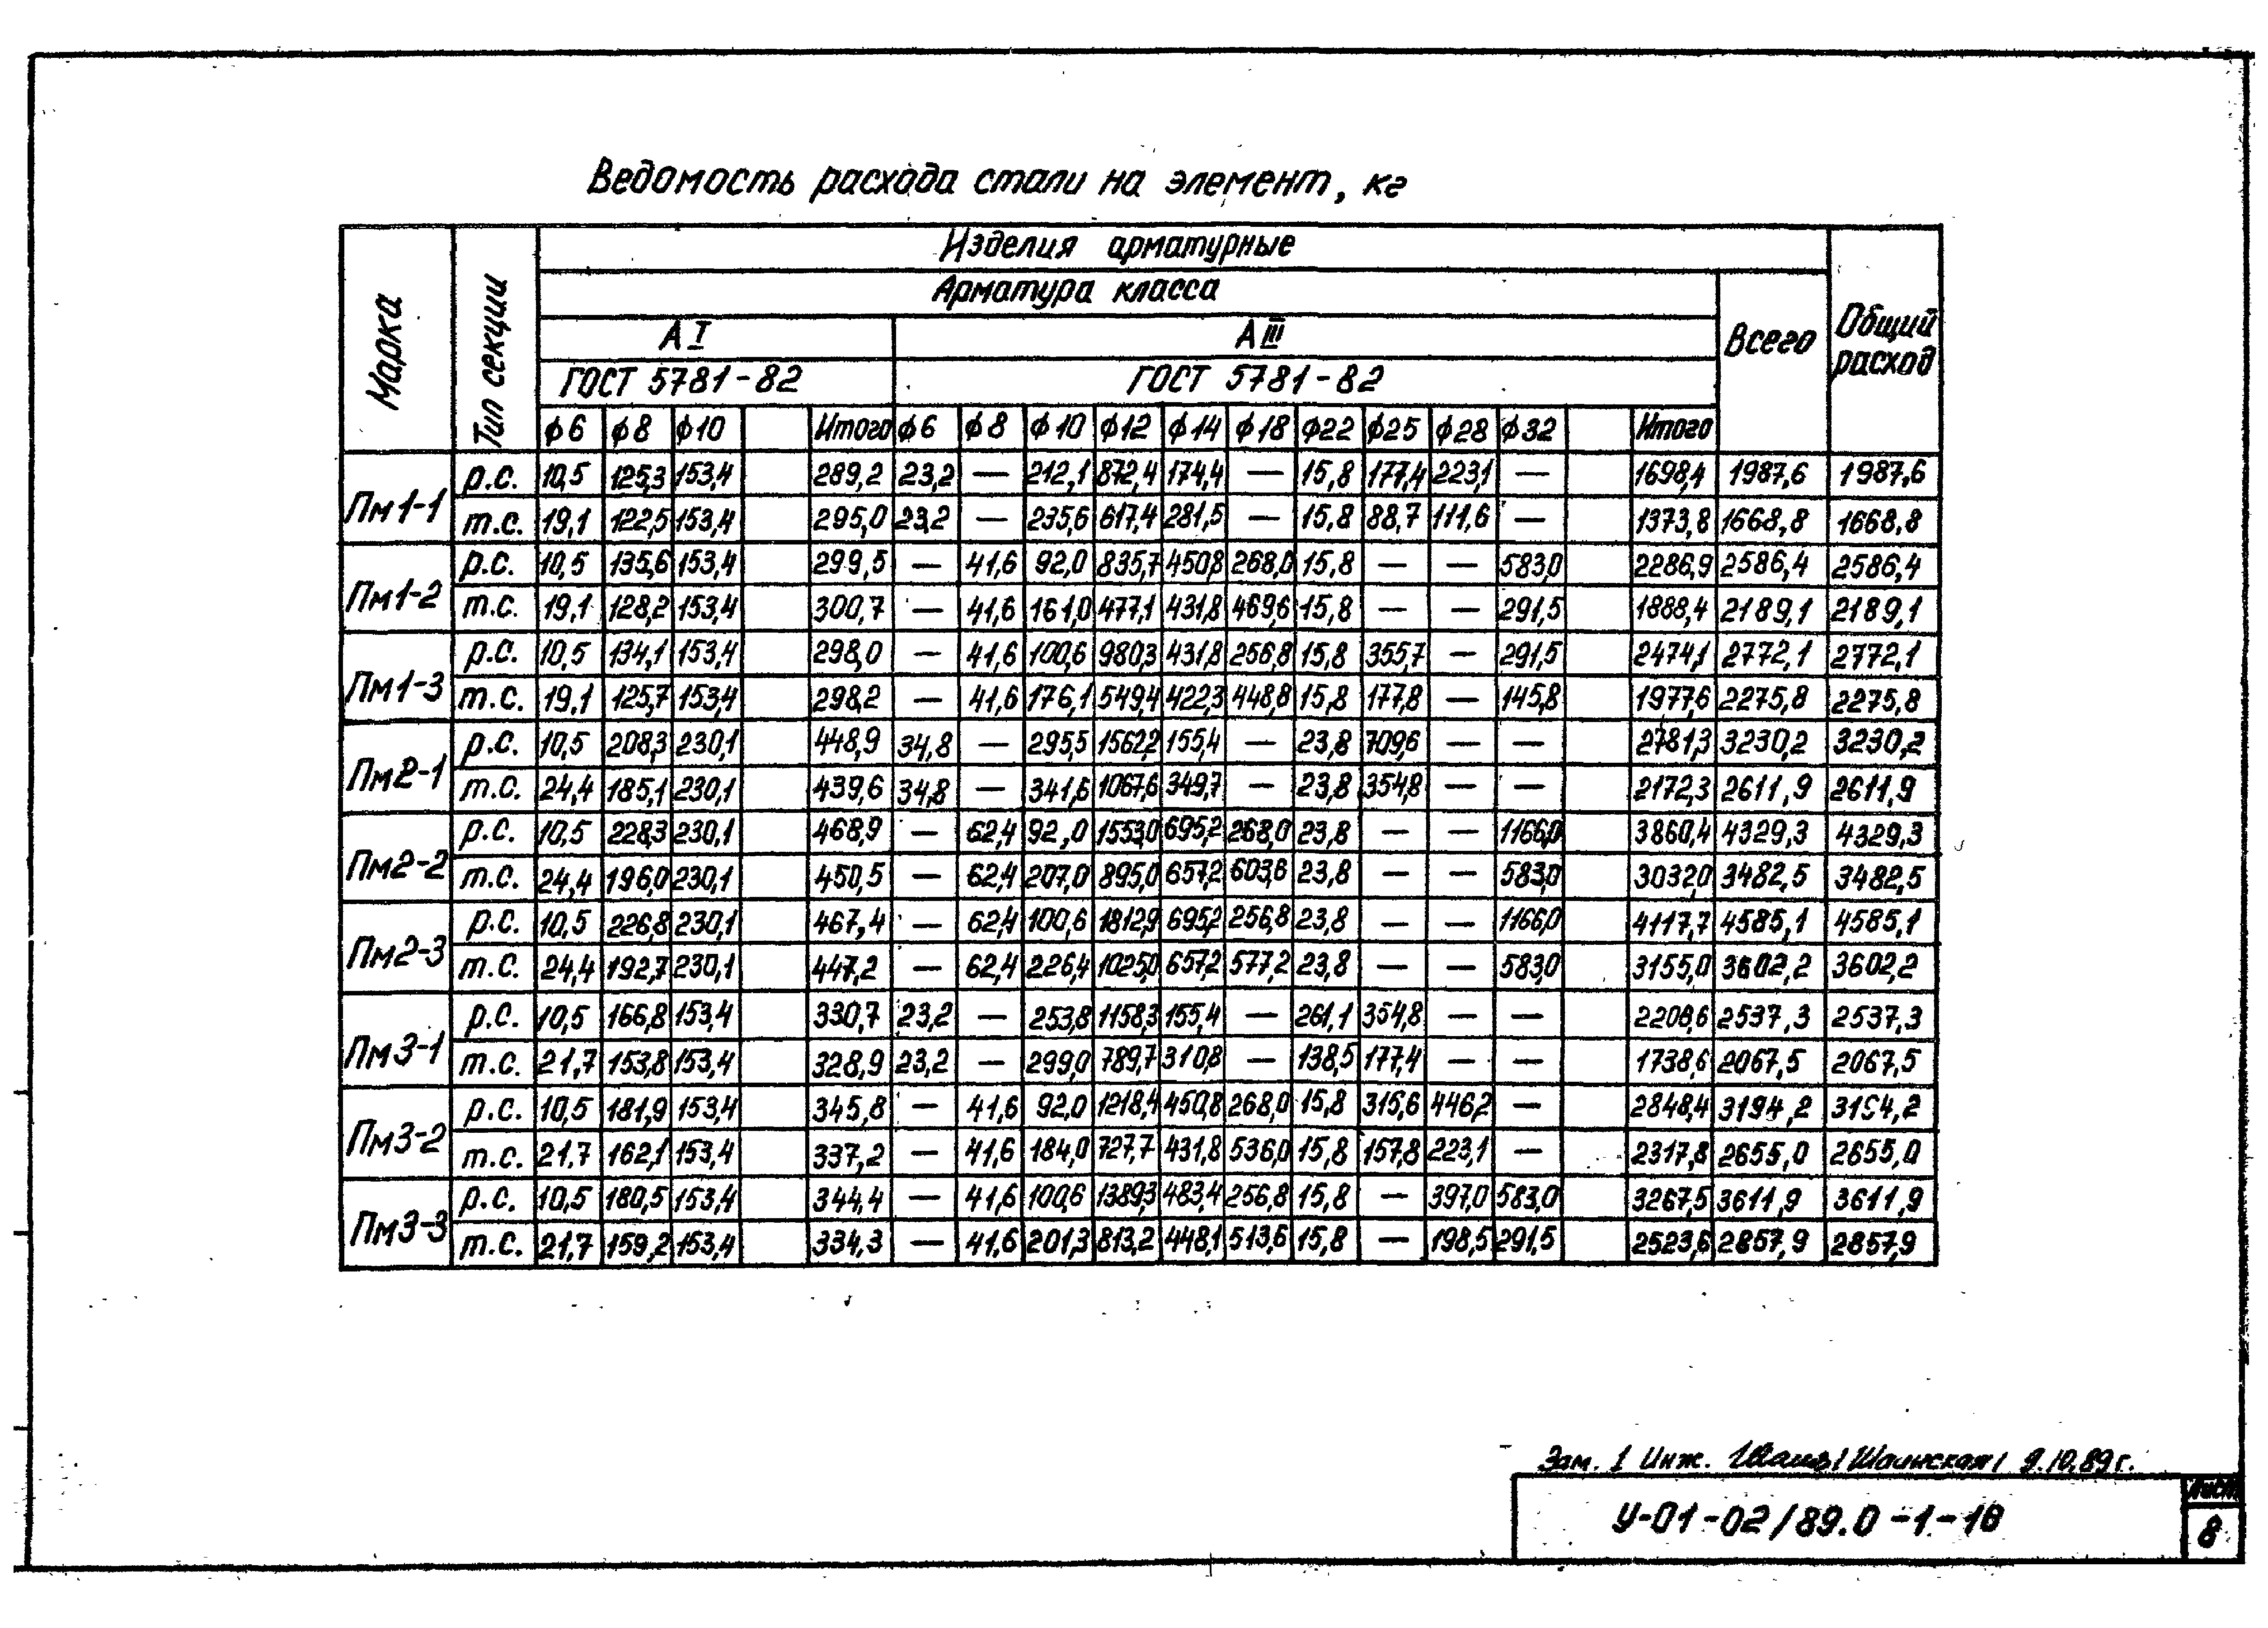 Ведомость расхода стали на элемент, кг
Марка Тип секции Изделия арматурные Общий расход
Арматура класса Всего
А I А III
ГОСТ 5781-82 ГОСТ 5781-82
ϕ6 ϕ8 ϕ10 Итого ϕ6 ϕ8 ϕ10 ϕ12 ϕ14 ϕ18 ϕ22 ϕ25 ϕ28 ϕ32 Итого
Пм1-1 р.с. 10,5 125,3 153,4 289,2 23,2 — 212,1 872,4 174,4 — 15,8 177,4 223,1 — 1698,4 1987,6 1987,6
т.с. 19,1 122,5 153,4 295,0 23,2 — 235,6 617,4 281,5 — 15,8 88,7 111,6 — 1373,8 1668,8 1668,8
Пм1-2 р.с. 10,5 135,6 153,4 299,5 — 41,6 92,0 835,7 450,8 268,0 15,8 — — 583,0 2286,9 2586,4 2586,4
т.с. 19,1 128,2 153,4 300,7 — 41,6 161,0 477,1 431,8 469,6 15,8 — — 291,5 1888,4 2189,1 2189,1
Пм1-3 р.с. 10,5 134,1 153,4 298,0 — 41,6 100,6 980,3 431,8 256,8 15,8 355,7 — 291,5 2474,1 2772,1 2772,1
т.с. 19,1 125,7 153,4 298,2 — 41,6 176,1 549,4 422,3 448,8 15,8 177,8 — 145,8 1977,6 2275,8 2275,8
Пм2-1 р.с. 10,5 208,3 230,1 448,9 34,8 — 295,5 1562,2 155,4 — 23,8 709,6 — — 2781,3 3230,2 3230,2
т.с. 24,4 185,1 230,1 439,6 34,8 — 341,6 1067,6 349,7 — 23,8 354,8 — — 2172,3 2611,9 2611,9
Пм2-2 р.с. 10,5 228,3 230,1 468,9 — 62,4 92,0 1553,0 695,2 268,0 23,8 — — 1166,0 3860,4 4329,3 4329,3
т.с. 24,4 196,0 230,1 450,5 — 62,4 207,0 895,0 657,2 603,6 23,8 — — 583,0 3032,0 3482,5 3482,5
Пм2-3 р.с. 10,5 226,8 230,1 467,4 — 62,4 100,6 1812,9 695,2 256,8 23,8 — — 1166,0 4117,7 4585,1 4585,1
т.с. 24,4 192,7 230,1 447,2 — 62,4 226,4 1025,0 657,2 577,2 23,8 — — 583,0 3155,0 3602,2 3602,2
Пм3-1 р.с. 10,5 166,8 153,4 330,7 23,2 — 253,8 1158,3 155,4 — 261,1 354,8 — — 2206,6 2537,3 2537,3
т.с. 21,7 153,8 153,4 328,9 23,2 — 299,0 789,7 310,8 — 138,5 177,4 — — 1738,6 2067,5 2067,5
Пм3-2 р.с. 10,5 181,9 153,4 345,8 — 41,6 92,0 1218,4 450,8 268,0 15,8 315,6 446,2 — 2848,4 3194,2 3194,2
т.с. 21,7 162,1 153,4 337,2 — 41,6 184,0 727,7 431,8 536,0 15,8 157,8 223,1 — 2317,8 2655,0 2655,0
Пм3-3 р.с. 10,5 180,5 153,4 344,4 — 41,6 100,6 1389,3 483,4 256,8 15,8 — 397,0 583,0 3267,5 3611,9 3611,9
т.с. 21,7 159,2 153,4 334,3 — 41,6 201,3 813,2 448,1 513,6 15,8 — 198,5 291,5 2523,6 2857,9 2857,9
Зам. 1 Инж. /Шаинская/ 9.10.89г.
У-01-02/89.0-1-18
Лист
8